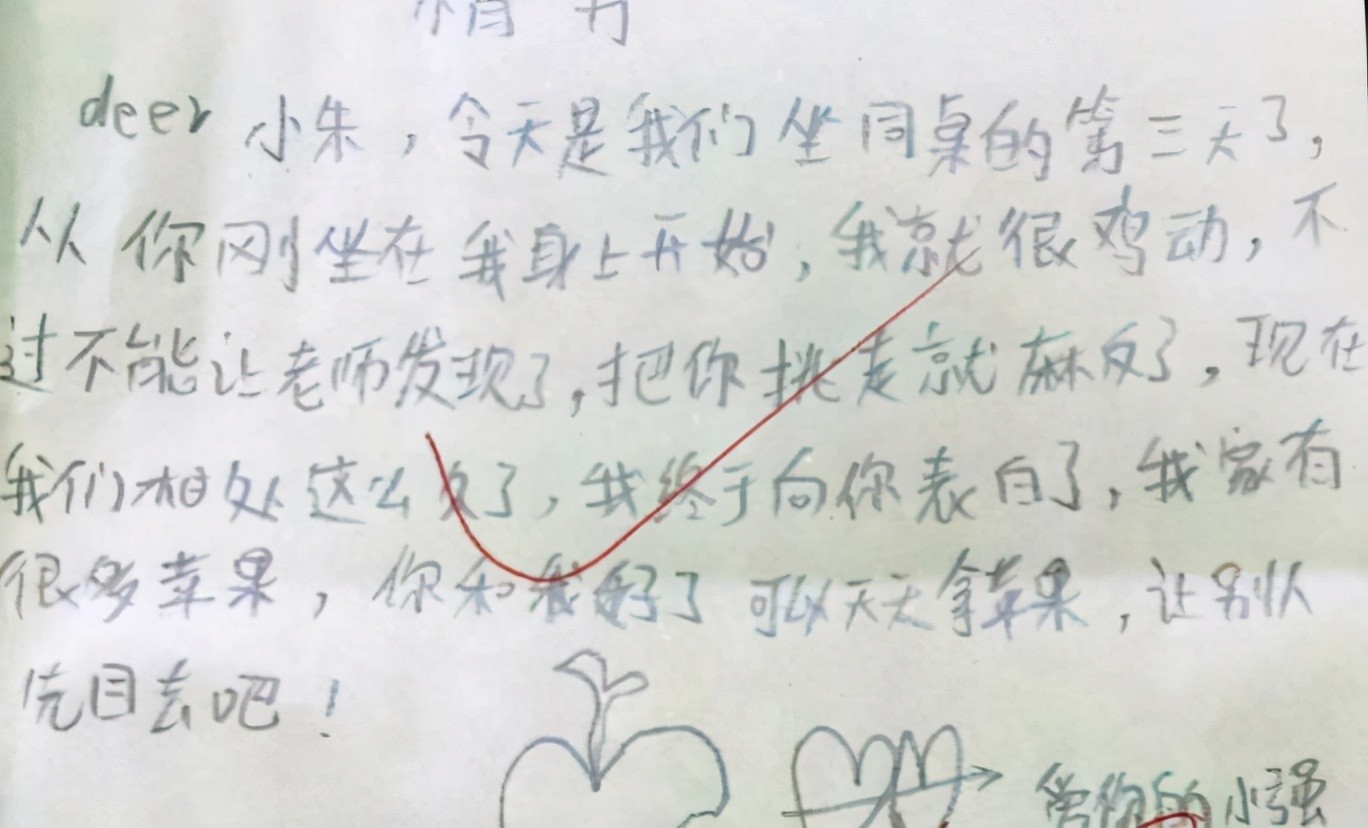 情书
deer 小朱，今天是我们坐同桌的第三天了，
从你刚坐在我身上开始，我就很鸡动，不
过不能让老师发现了，把你挑走就麻反了，现在
我们相处这么久了，我终于向你表白了，我家有
很多苹果，你和我好了可以天天拿苹果，让别人
目去吧！
你的小强